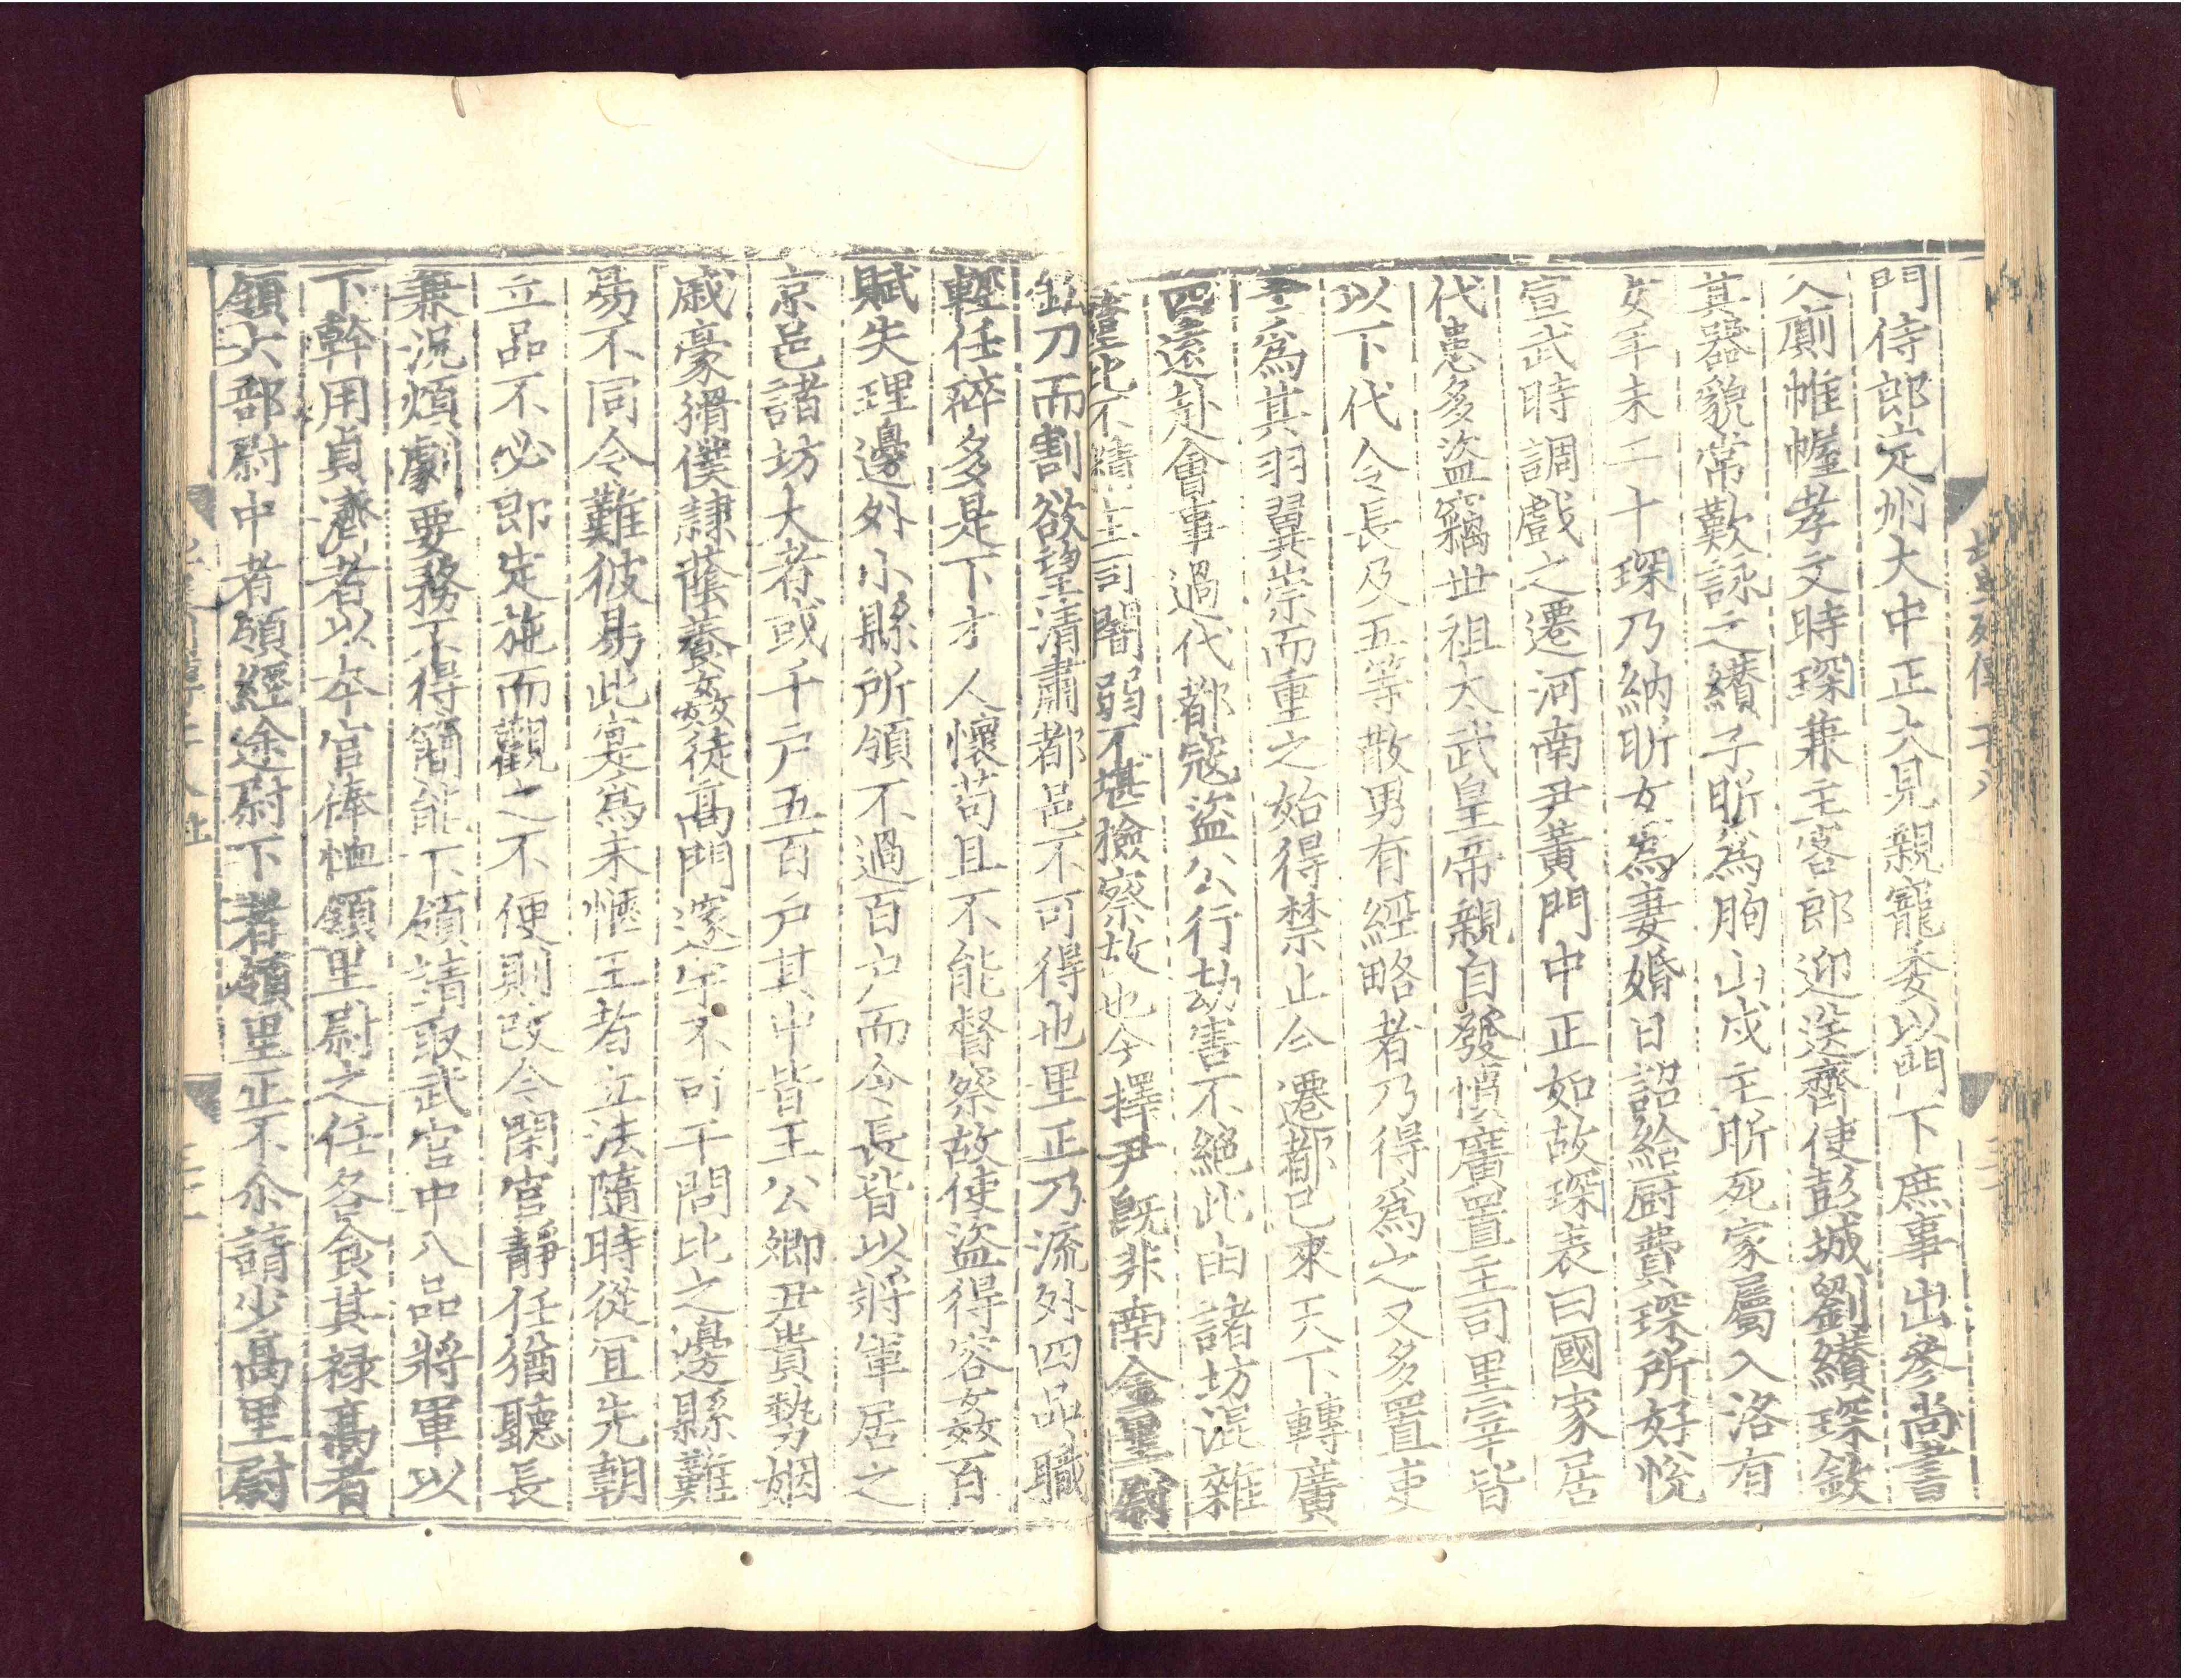 門侍郎定州大中正大見親寵委以門下庶事出參尚書
入廁帷幄孝文時琛兼主客郎迎送齊使彭城劉纘琛欽
其器貌常歎詠之纘子昕爲朐山戍主昕死家屬入洛有
女年未二十琛乃納昕女爲妻婚日詔給厨費琛所好悅
宣武時調戲之遷河南尹黃門中正如故琛表曰國家居
代患多盜竊世祖太武皇帝親自發憤廣置主司里宰皆
以下代令長及五等散男有經略者乃得爲之又多置吏
士爲其羽翼崇而重之始得禁止今遷都已來天下轉廣
四遠赴會事過代都寇盜公行劫害不絕此由諸坊混雜
釐比不精主司闇弱不堪檢察故也今擇尹旣非南金里尉
鈆刀而割欲望清肅都邑不可得也里正乃流外四品職
輕任碎多是下才人懷苟且不能督察故使盜得容姦百
賦失理邊外小縣所領不過百户而令長皆以將軍居之
京邑諸坊大者或千户五百户其中皆王公卿尹貴勢姻
戚豪猾僕隸蔭養姦徒高門邃宇不可干問比之邊縣難
易不同令難彼易此寔爲未愜王者立法隨時從宜先朝
立品不必即定施而觀之不便則改今閑官靜任猶聽長
兼況煩劇要務不得簡能下領請取武官中八品將軍以
下幹用貞濟者以本官俸恤領里尉之任各食其禄高者
領六部尉中者領經途尉下者領里正不尒請少高里尉